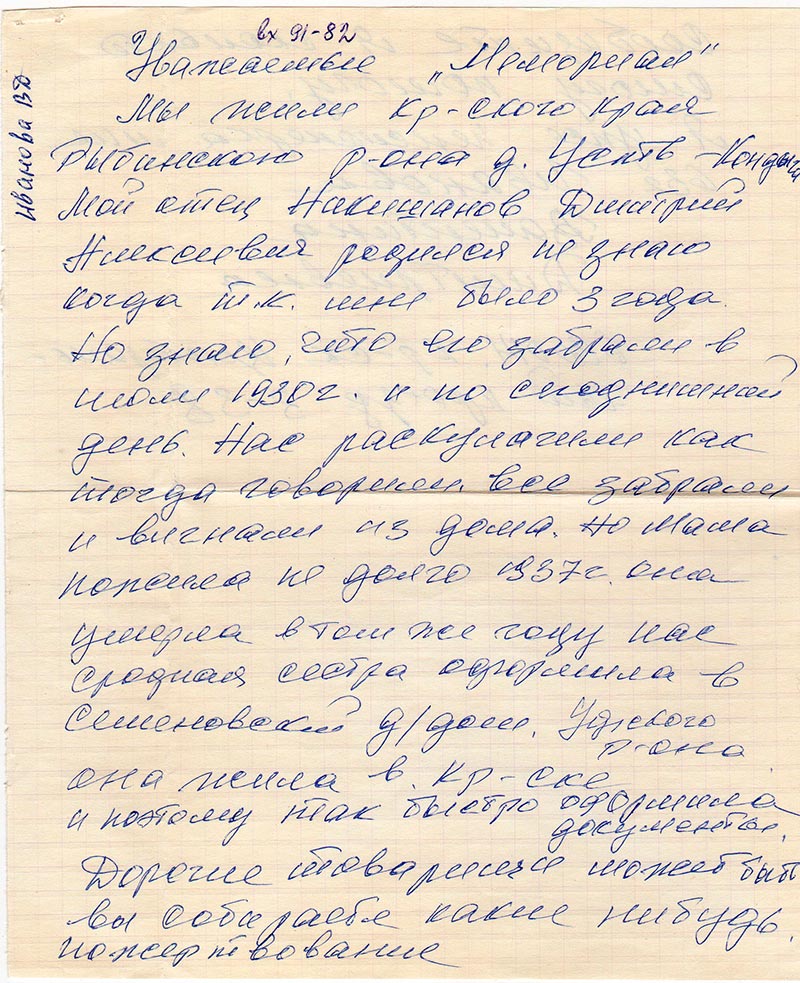 вх 91-82
Иванова ВД
Уважаемые „Мемориал"
Мы жили Кр-ского Края
Рыбинского р-она д. Усть-Кондыга
Мой отец Дмитрий
Алексеевич родился не знаю
когда т.к. мне было 3 года.
Но знаю, что его забрали в
июли 193 г. и по сегоднишной
день. Нас раскулачили как
тогда говорили. все забрали
и вигнали из дома. Но Мама
пожила не долго 1937 г. она
умерла в том же году нас
сродная сестра оформила в
Семеновский д/дом. Ужского
р-она
она жила в. Кр-ске
и поэтому так быстро оформила
документы.
Дорогие товарищи может быть
вы собираете какие нибудь
пожертвование